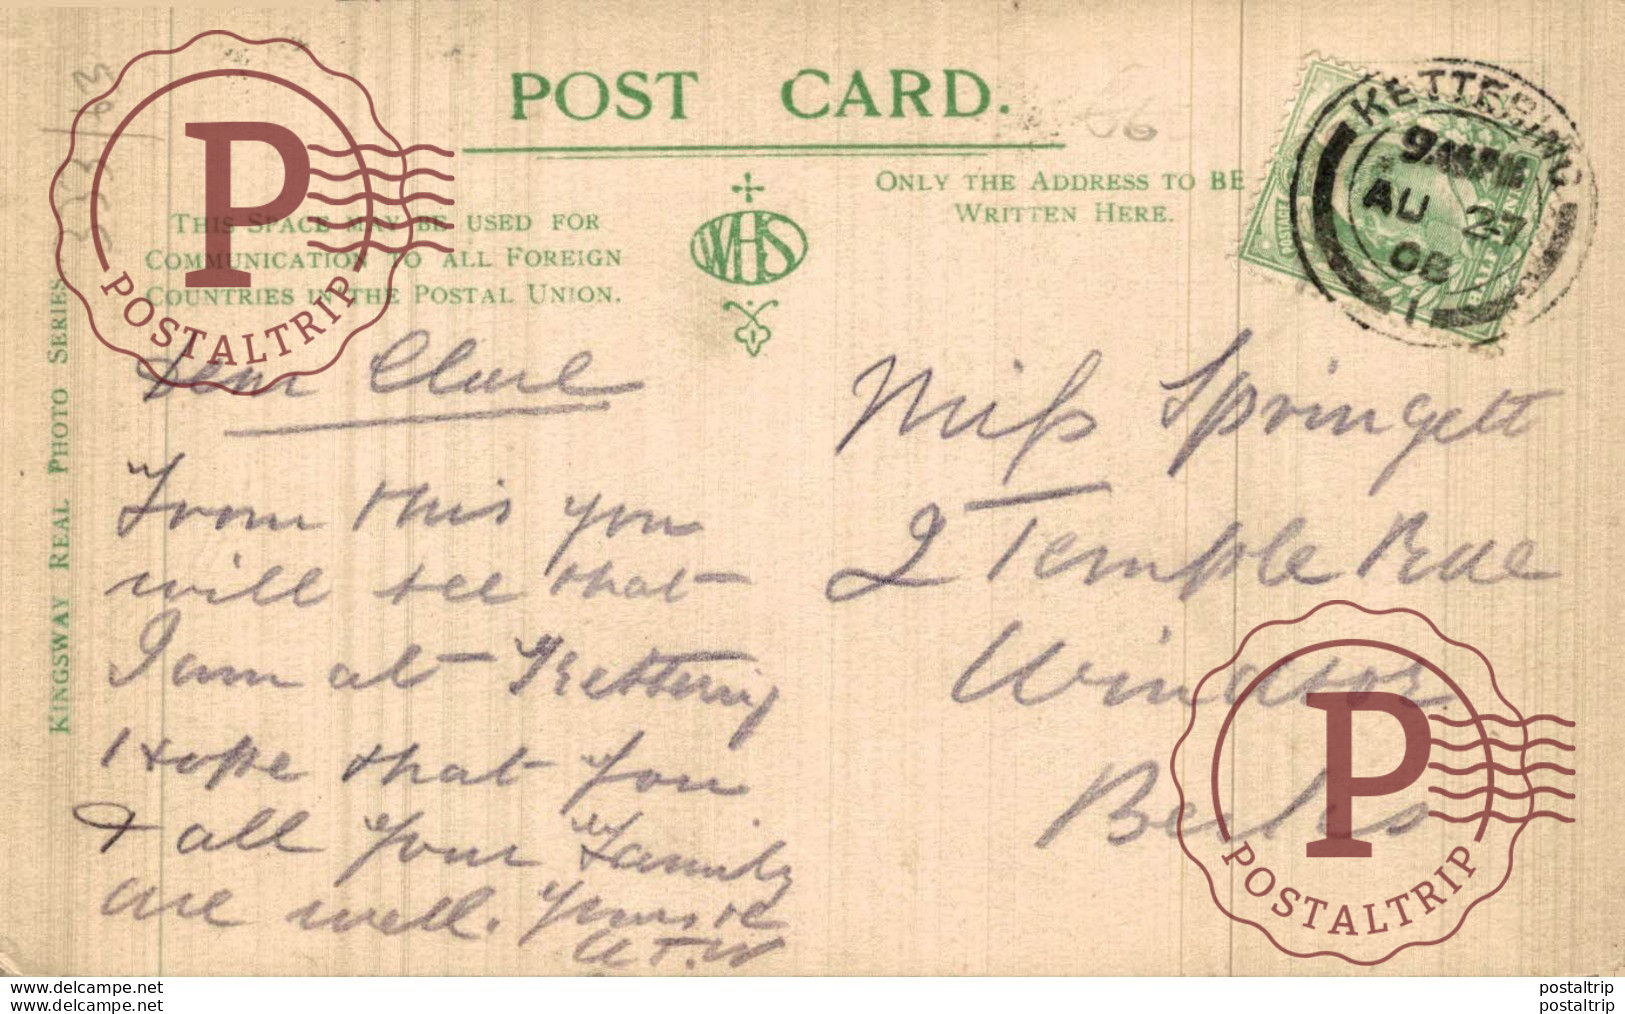 POST CARD.
ONLY THE ADDRESS TO BE
WRITTEN HERE.
THIS SPACE MAY BE USED FOR
COMMUNICATION TO ALL FOREIGN
COUNTRIES IN THE POSTAL UNION.
WHS
KINGSWAY REAL PHOTO SERIES
KETTERING
AU 27
08
1
POSTAGE
HALF PENNY
Dear Clare
From this you
will see that
I am at Kettering
Hope that you
& all your Family
are well. Yours
A.T.W
Miss Springett
2 Temple Rae
Windsor
Berks
P
POSTALTRIP
P
POSTALTRIP
www.delcampe.net
www.delcampe.net
postaltrip
postaltrip